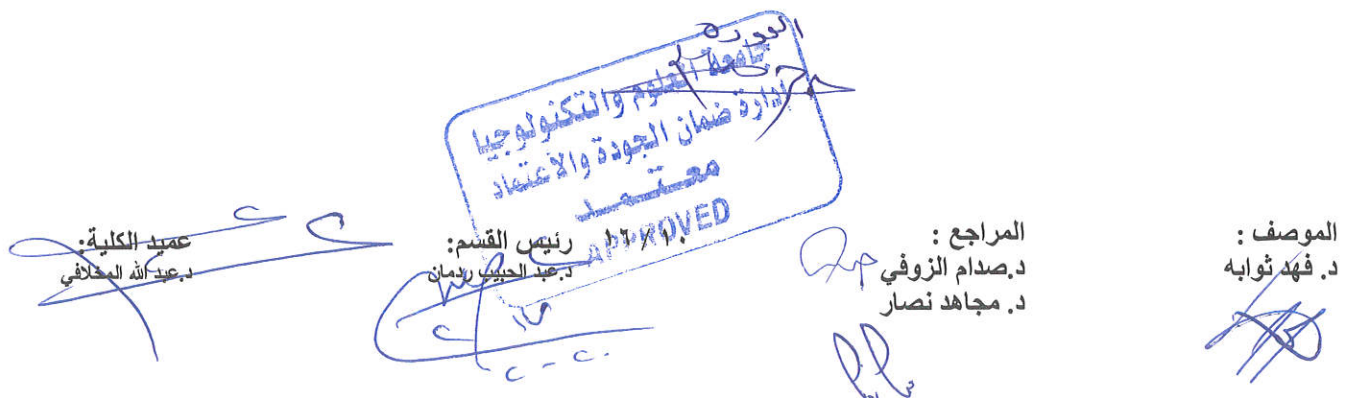 الجودة
جامعة العلوم والتكنولوجيا
إدارة ضمان الجودة والاعتماد
معتمد
APPROVED
الموصف :
د. فهد ثوابه
المراجع :
د.صدام الزوفي
د. مجاهد نصار
رئيس القسم:
د.عبد الحبيب ردمان
عميد الكلية:
د.عبد الله المخلافي